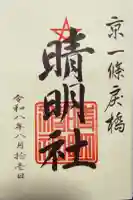 京一條戻橋
晴明社
令和八年八月拾壱日